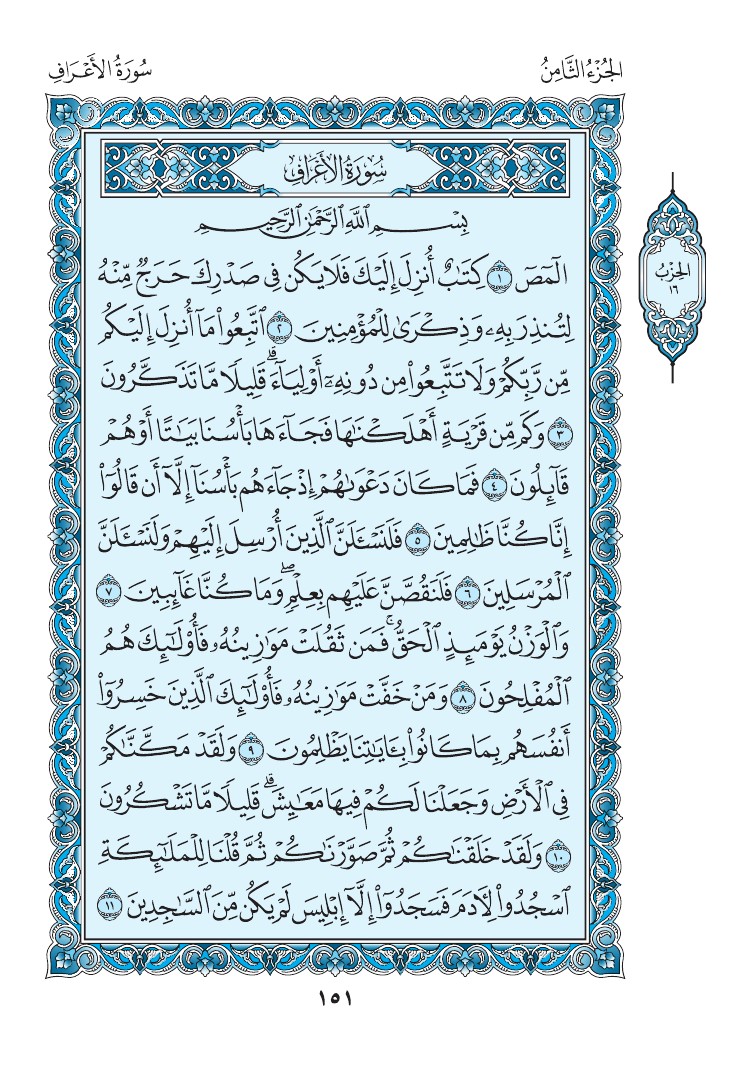 الجُزْءُ الثَّامِنُ
سُورَةُ الأَعْرَافِ
سُورَةُ الأَعْرَافِ
بِسْمِ ٱللَّهِ ٱلرَّحْمَٰنِ ٱلرَّحِيمِ
الٓمٓصٓ ١ كِتَٰبٌ أُنزِلَ إِلَيْكَ فَلَا يَكُن فِي صَدْرِكَ حَرَجٌ مِّنْهُ
لِتُنذِرَ بِهِۦ وَذِكْرَىٰ لِلْمُؤْمِنِينَ ٢ ٱتَّبِعُوا۟ مَآ أُنزِلَ إِلَيْكُم
مِّن رَّبِّكُمْ وَلَا تَتَّبِعُوا۟ مِن دُونِهِۦٓ أَوْلِيَآءَ ۗ قَلِيلًا مَّا تَذَكَّرُونَ
٣ وَكَم مِّن قَرْيَةٍ أَهْلَكْنَٰهَا فَجَآءَهَا بَأْسُنَا بَيَٰتًا أَوْ هُمْ
قَآئِلُونَ ٤ فَمَا كَانَ دَعْوَىٰهُمْ إِذْ جَآءَهُم بَأْسُنَآ إِلَّآ أَن قَالُوٓا۟
إِنَّا كُنَّا ظَٰلِمِينَ ٥ فَلَنَسْـَٔلَنَّ ٱلَّذِينَ أُرْسِلَ إِلَيْهِمْ وَلَنَسْـَٔلَنَّ
ٱلْمُرْسَلِينَ ٦ فَلَنَقُصَّنَّ عَلَيْهِم بِعِلْمٍ ۖ وَمَا كُنَّا غَآئِبِينَ ٧
وَٱلْوَزْنُ يَوْمَئِذٍ ٱلْحَقُّ ۚ فَمَن ثَقُلَتْ مَوَٰزِينُهُۥ فَأُو۟لَٰٓئِكَ هُمُ
ٱلْمُفْلِحُونَ ٨ وَمَنْ خَفَّتْ مَوَٰزِينُهُۥ فَأُو۟لَٰٓئِكَ ٱلَّذِينَ خَسِرُوٓا۟
أَنفُسَهُم بِمَا كَانُوا۟ بِـَٔايَٰتِنَا يَظْلِمُونَ ٩ وَلَقَدْ مَكَّنَّٰكُمْ
فِي ٱلْأَرْضِ وَجَعَلْنَا لَكُمْ فِيهَا مَعَٰيِشَ ۗ قَلِيلًا مَّا تَشْكُرُونَ
١٠ وَلَقَدْ خَلَقْنَٰكُمْ ثُمَّ صَوَّرْنَٰكُمْ ثُمَّ قُلْنَا لِلْمَلَٰٓئِكَةِ
ٱسْجُدُوا۟ لِـَٔادَمَ فَسَجَدُوٓا۟ إِلَّآ إِبْلِيسَ لَمْ يَكُن مِّنَ ٱلسَّٰجِدِينَ ١١
الحِزْبُ
١٦
١٥١